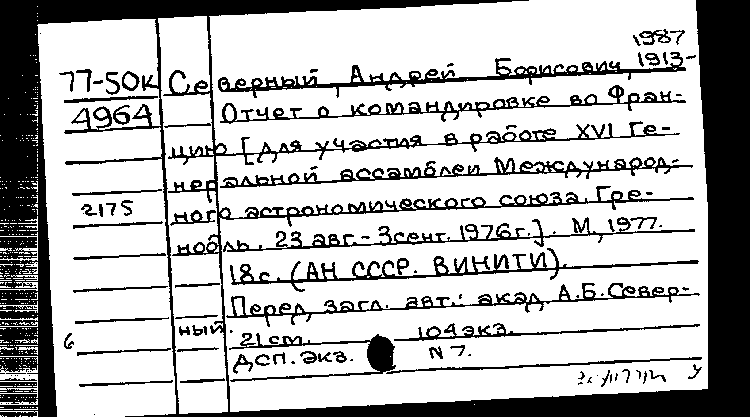 1987
77-50к Северный, Андрей Борисович, 1913-
4964 Отчет о командировке во Фран-
цию [для участия в работе XVI Ге-
неральной ассамблеи Международ-
2175 ного астрономического союза. Гре-
нобль. 23 авг.-3 сент. 1976г.]. М., 1977.
18с. (АН СССР. ВИНИТИ).
Перед загл. авт.: акад. А.Б.Север-
ный.
6 21 cm. 104 экз.
ДСП. Экз. N 7.
У